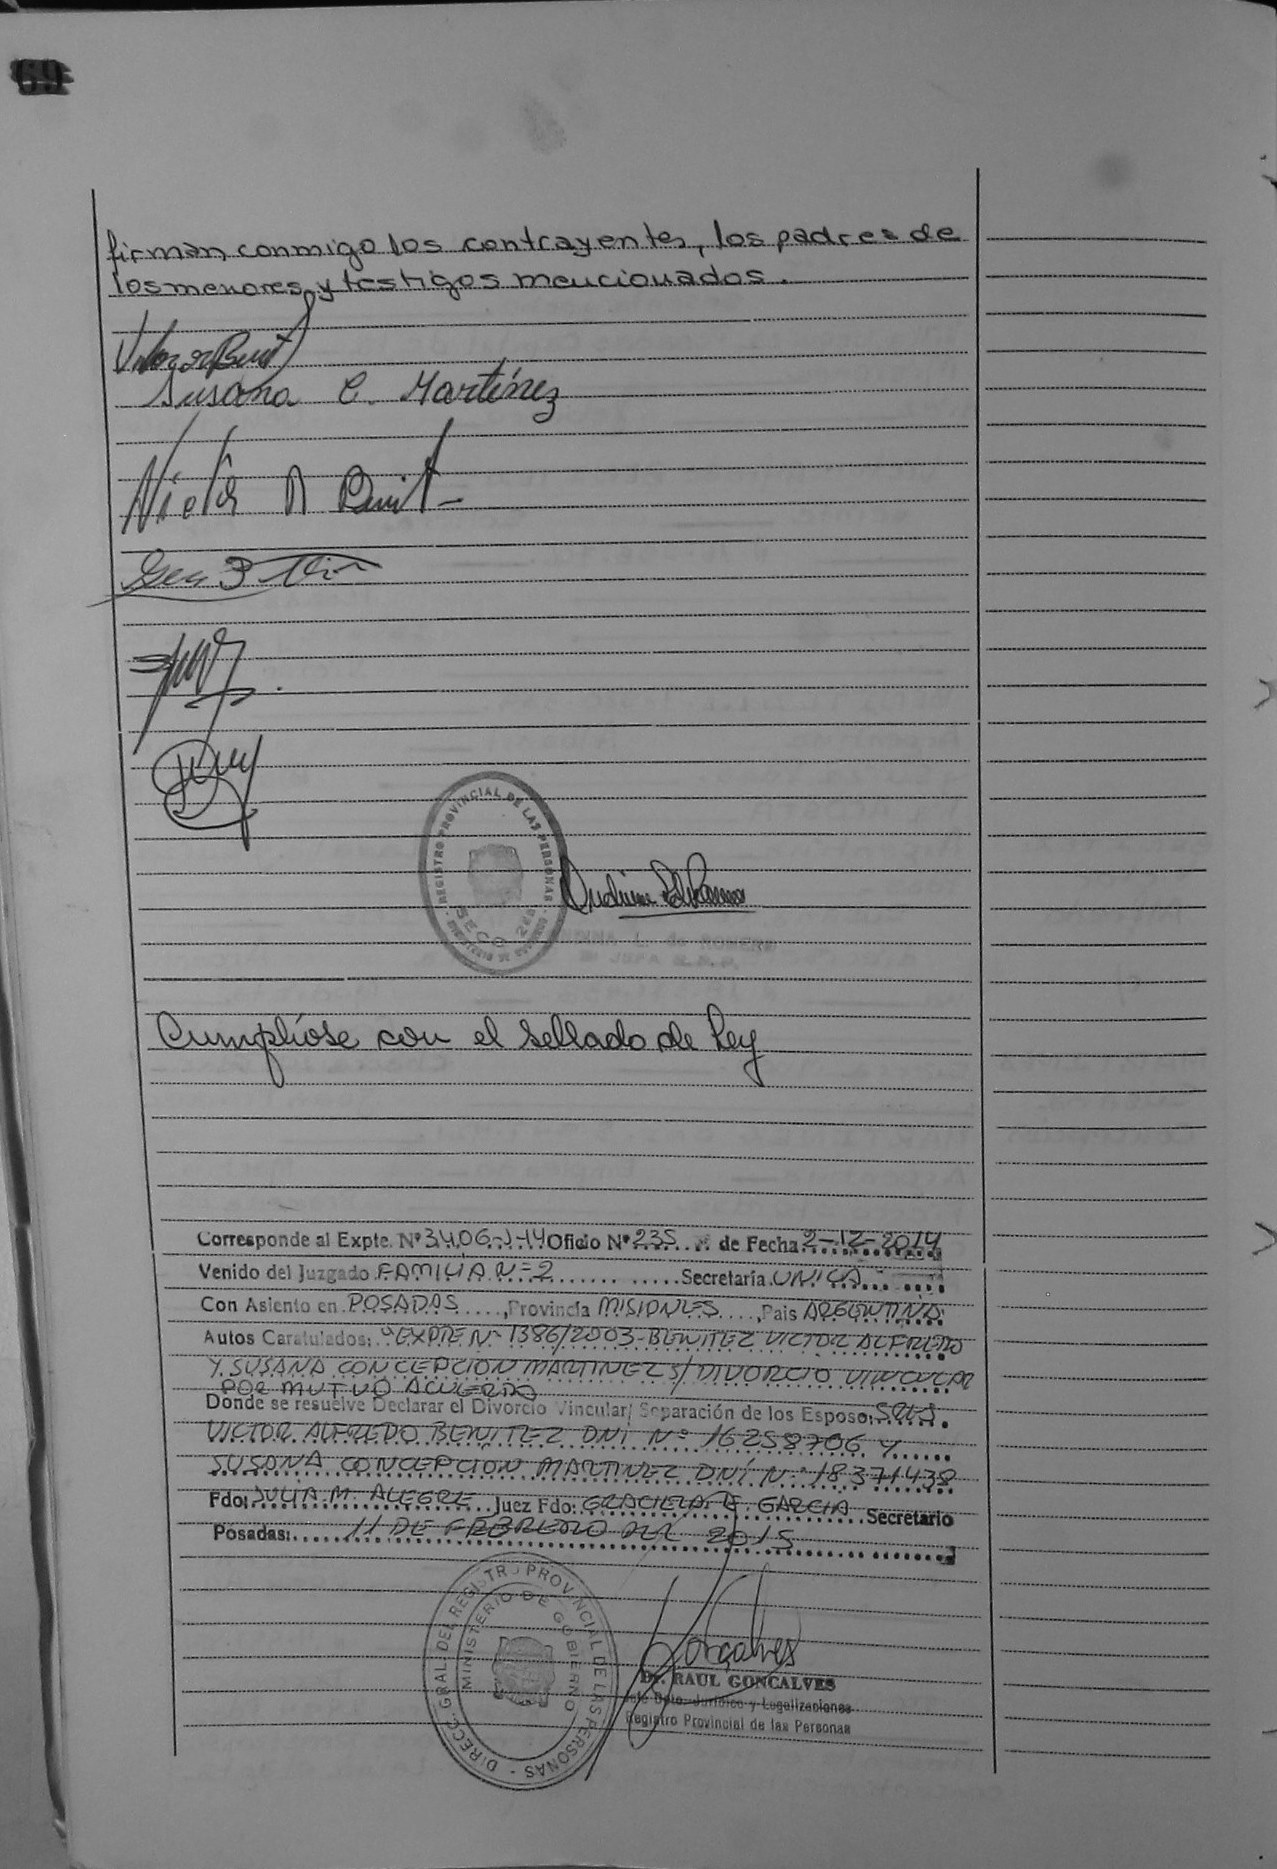 69
firman conmigo los contrayentes, los padres de
los menores y testigos mencionados.
Susana C. Martínez
REGISTRO PROVINCIAL DE LAS PERSONAS
L. de ROMERO
Cumplióse con el sellado de Ley
Corresponde al Expte. Nº 3406-J-14 Oficio Nº 235 de Fecha 2-12-2014
Venido del Juzgado FAMILIA Nº 2 Secretaría UNICA
Con Asiento en POSADAS, Provincia MISIONES, País ARGENTINA
Autos Caratulados: "EXPTE Nº 1386/2003-BENITEZ VICTOR ALFREDO
Y SUSANA CONCEPCION MARTINEZ S/ DIVORCIO VINCULAR
POR MUTUO ACUERDO
Donde se resuelve Declarar el Divorcio Vincular/ Separación de los Esposos: SRES
VICTOR ALFREDO BENITEZ DNI Nº 16258706 Y
SUSANA CONCEPCION MARTINEZ DNI Nº 18371438
Fdo: JULIA M. ALEGRE Juez Fdo: GRACIELA R. GARCIA Secretario
Posadas: 11 DE FEBRERO DEL 2015
DIRECC. GRAL. DEL REGISTRO PROVINCIAL DE LAS PERSONAS
MINISTERIO DE GOBIERNO
Goncalves
Dr. RAUL GONCALVES
Jefe Dpto. Jurídico y Legalizaciones
Registro Provincial de las Personas